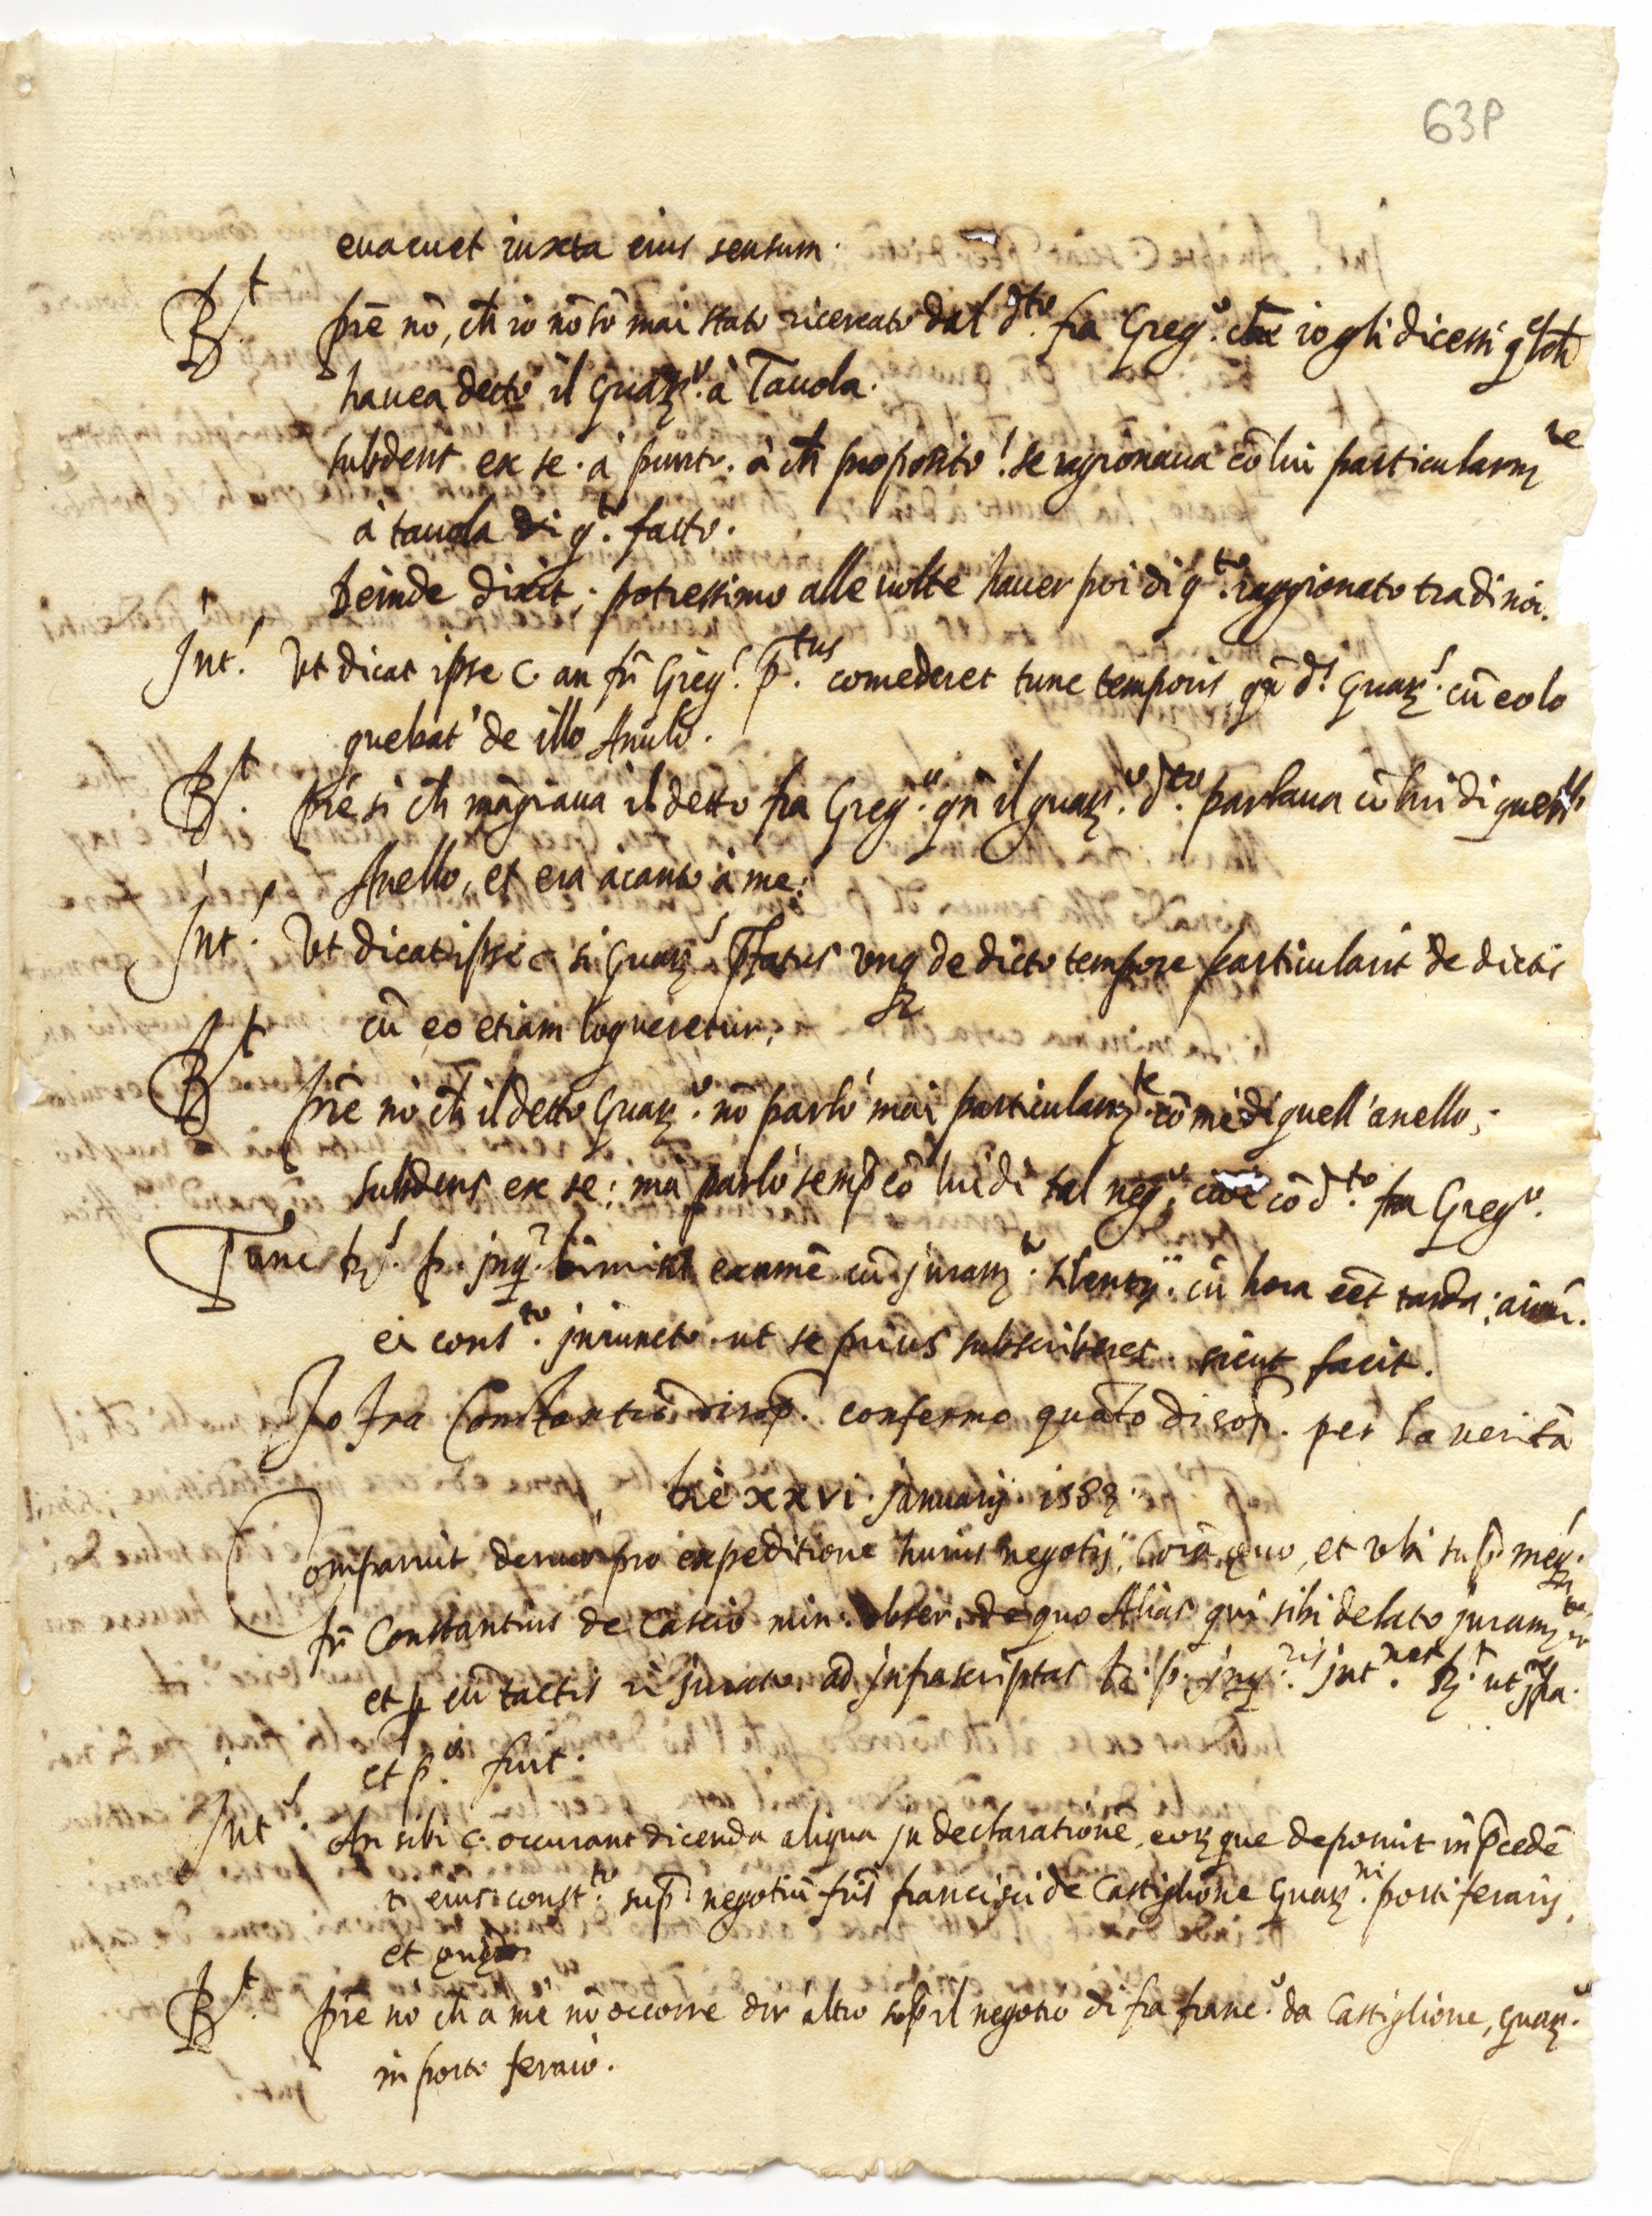 63P
evacuet iuxta eius sensum.
Rt. prē nō, ch̄ io nō sō mai stato ricercato dal d.to fra Greg.o che io gli dicessi
havea detto il Guar.o à Tavola.
subdens ex se. à punto. à ch̄ proposito! se ragionava cō lui particularm.te
à tavola di q.to fatto.
Deinde dixit; potressimo alle volte haver poi di q.to raggionato tra di noi.
Int.s Ut dicat ipse C. an fr̄ Greg.s p.tus comederet tunc temporis, qn̄ d.s Guar.s cū eo lo
quebat' de illo Anulo.
Rt. prē si ch̄ māgiava il detto fra Greg.o qn̄ il guar.o d.to parlava cō lui di quello
Anello, et era acanto à me.
Int.s Ut dicat ipse C. si Guar.s p̄fatus unq̄ de dicto tempore particularit̄ de dictis
cū eo etiam loqueretur.
Rt. prē no ch̄ il detto Guar.o nō parlò mai particularm.te cō me di quell' anello;
subdens ex se: ma parlò semp̄ cō lui di tal neg.o, cioè cō d.to fra Greg.o.
Tunc p. Inq.r examē cū juram.to silentij. cū hora eēt tarda;
ei cons.to iniuncto. ut se prius subscriberet. sicut facit.
Io Fra Constantio disop̄. confermo quāto di sop̄. per la verità
Die xxvi. januarij. 1583.
Comparuit denuo pro expeditione huius negotij, Corā quo, et ubi sup̄
fr̄ Constantius de Cascio min. obser. de quo Alias qui sibi delato juram.to
et p eū tactis ad infrascriptas p. inq.ris int.nes Rt. ut infra.
et p.o fuit.
Int.s An sibi C. occurrant dicenda aliqua in declarationē eorq̄ que deposuit in p̄cedē
ti eius const.to sup̄ negotiū fr̄is francisci de Castiglione Guar.ni porti ferarij,
et
Rt. prē no ch̄ a me nō occorre dir altro sop̄ il negotio di fra franc.o da Castiglione, guar.o
in porto feraio.